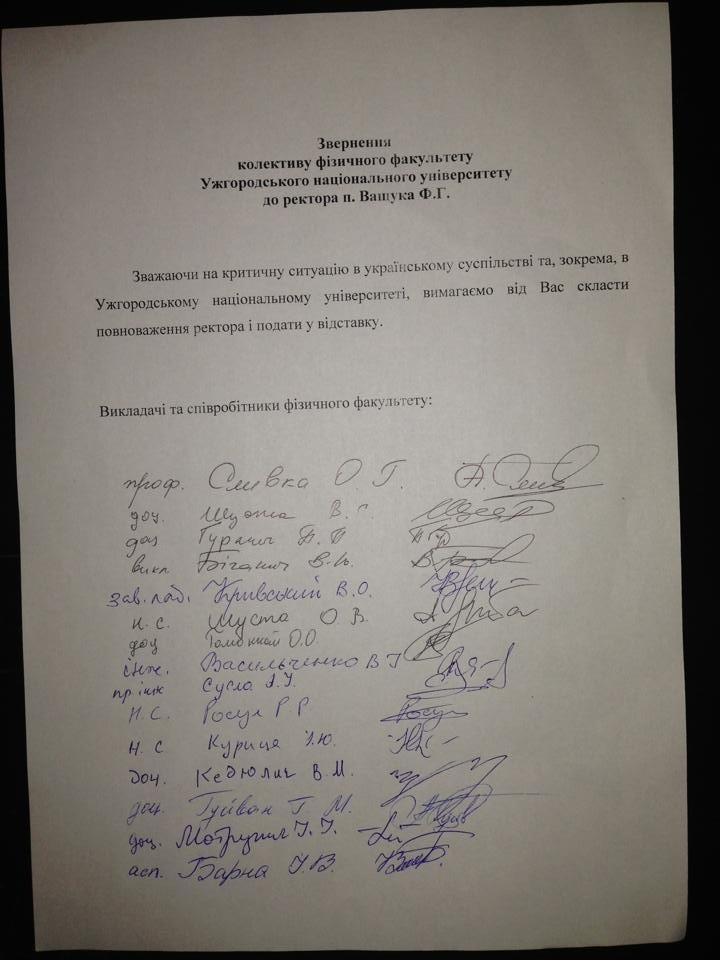 Звернення
колективу фізичного факультету
Ужгородського національного університету
до ректора п. Ващука Ф.Г.
Зважаючи на критичну ситуацію в українському суспільстві та, зокрема, в
Ужгородському національному університеті, вимагаємо від Вас скласти
повноваження ректора і подати у відставку.
Викладачі та співробітники фізичного факультету:
проф. Сливка О. Г.
доц. В. С.
доц П. П
викл Біганич В. Ю.
зав. лаб. Кривський В. О.
н. с. Шуста О В.
доц О.О.
інж. Васильченко В Г
пр. інж Сусла
н. с. Росул Р. Р. Росул
н. с Куриця І. Ю.
доц. Кедюлич В. М.
доц. Гуйван Г. М.
доц. І. І.
асп. Барна І. В.